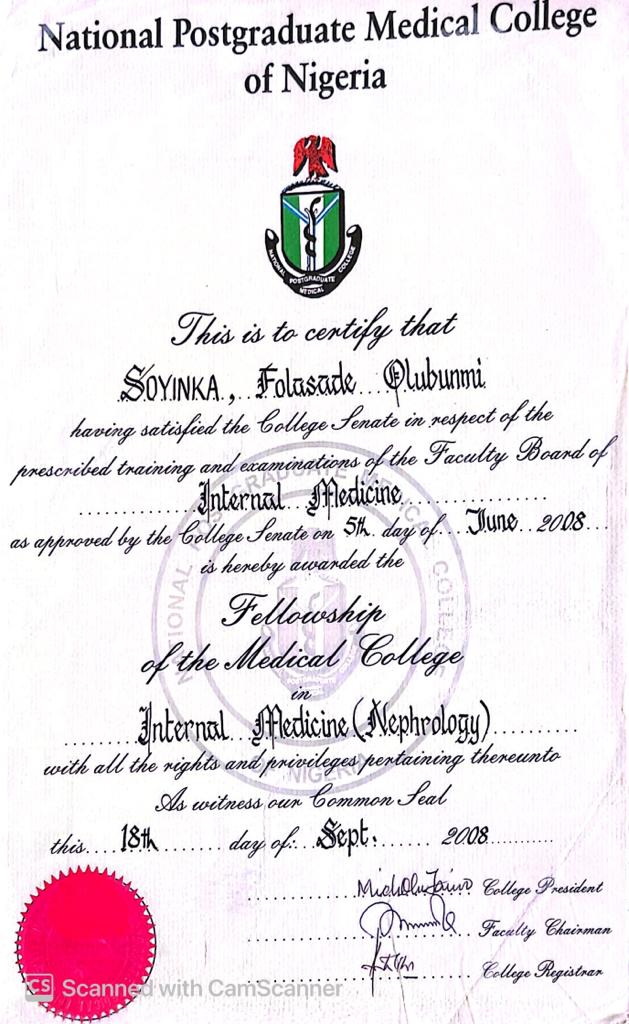 National Postgraduate Medical College
of Nigeria
NATIONAL POSTGRADUATE MEDICAL COLLEGE
This is to certify that
SOYINKA, Folasade Olubunmi
having satisfied the College Senate in respect of the
prescribed training and examinations of the Faculty Board of
Internal Medicine
as approved by the College Senate on 5th day of June 2008
is hereby awarded the
Fellowship
of the Medical College
in
Internal Medicine (Nephrology)
with all the rights and privileges pertaining thereunto
As witness our Common Seal
this 18th day of: Sept. 2008
College President
Faculty Chairman
College Registrar
NATIONAL POSTGRADUATE MEDICAL COLLEGE
OF NIGERIA
CS Scanned with CamScanner